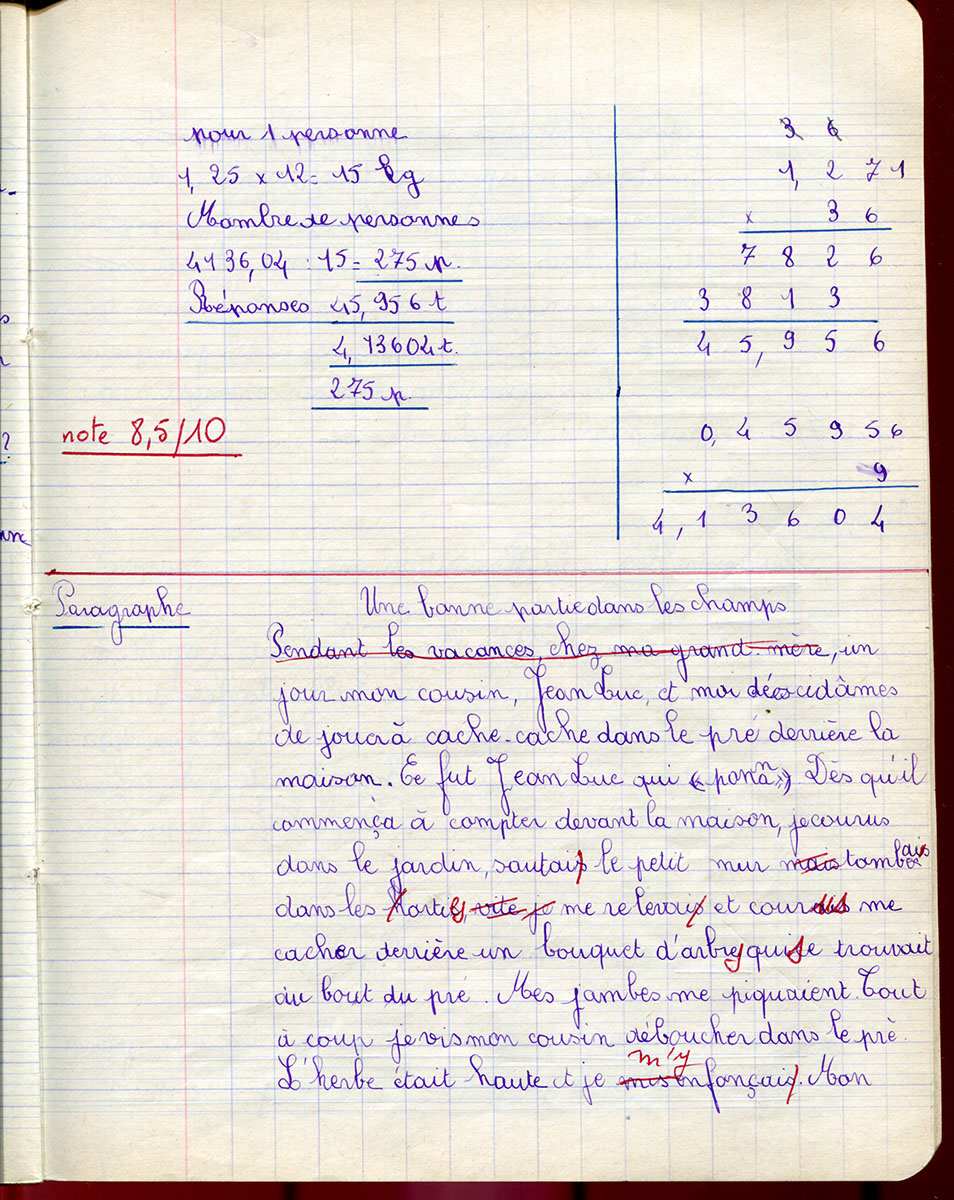 pour 1 personne
1,25 x 12 = 15 kg
Nombre de personnes
4136,04 : 15 = 275 p.
Réponses 45,956 t
4,13604 t.
275 p.
note 8,5/10
3 6
1,271
x 36
7826
3813
45,956
0,45956
x 9
4,13604
Paragraphe
Une bonne partie dans les champs
Pendant les vacances, chez ma grand-mère, un
jour mon cousin, Jean Luc, et moi décidâmes
de jouer à cache-cache dans le pré derrière la
maison. Ce fut Jean Luc qui « Dès qu'il
commença à compter devant la maison, je courus
dans le jardin, sautais le petit mur mais tombais
dans les orties, vite je me relevais et courus me
cacher derrière un bouquet d'arbres qui se trouvait
au bout du pré. Mes jambes me piquaient. Tout
à coup je vis mon cousin déboucher dans le pré.
m'y
L'herbe était haute et je mis enfonçais. Mon